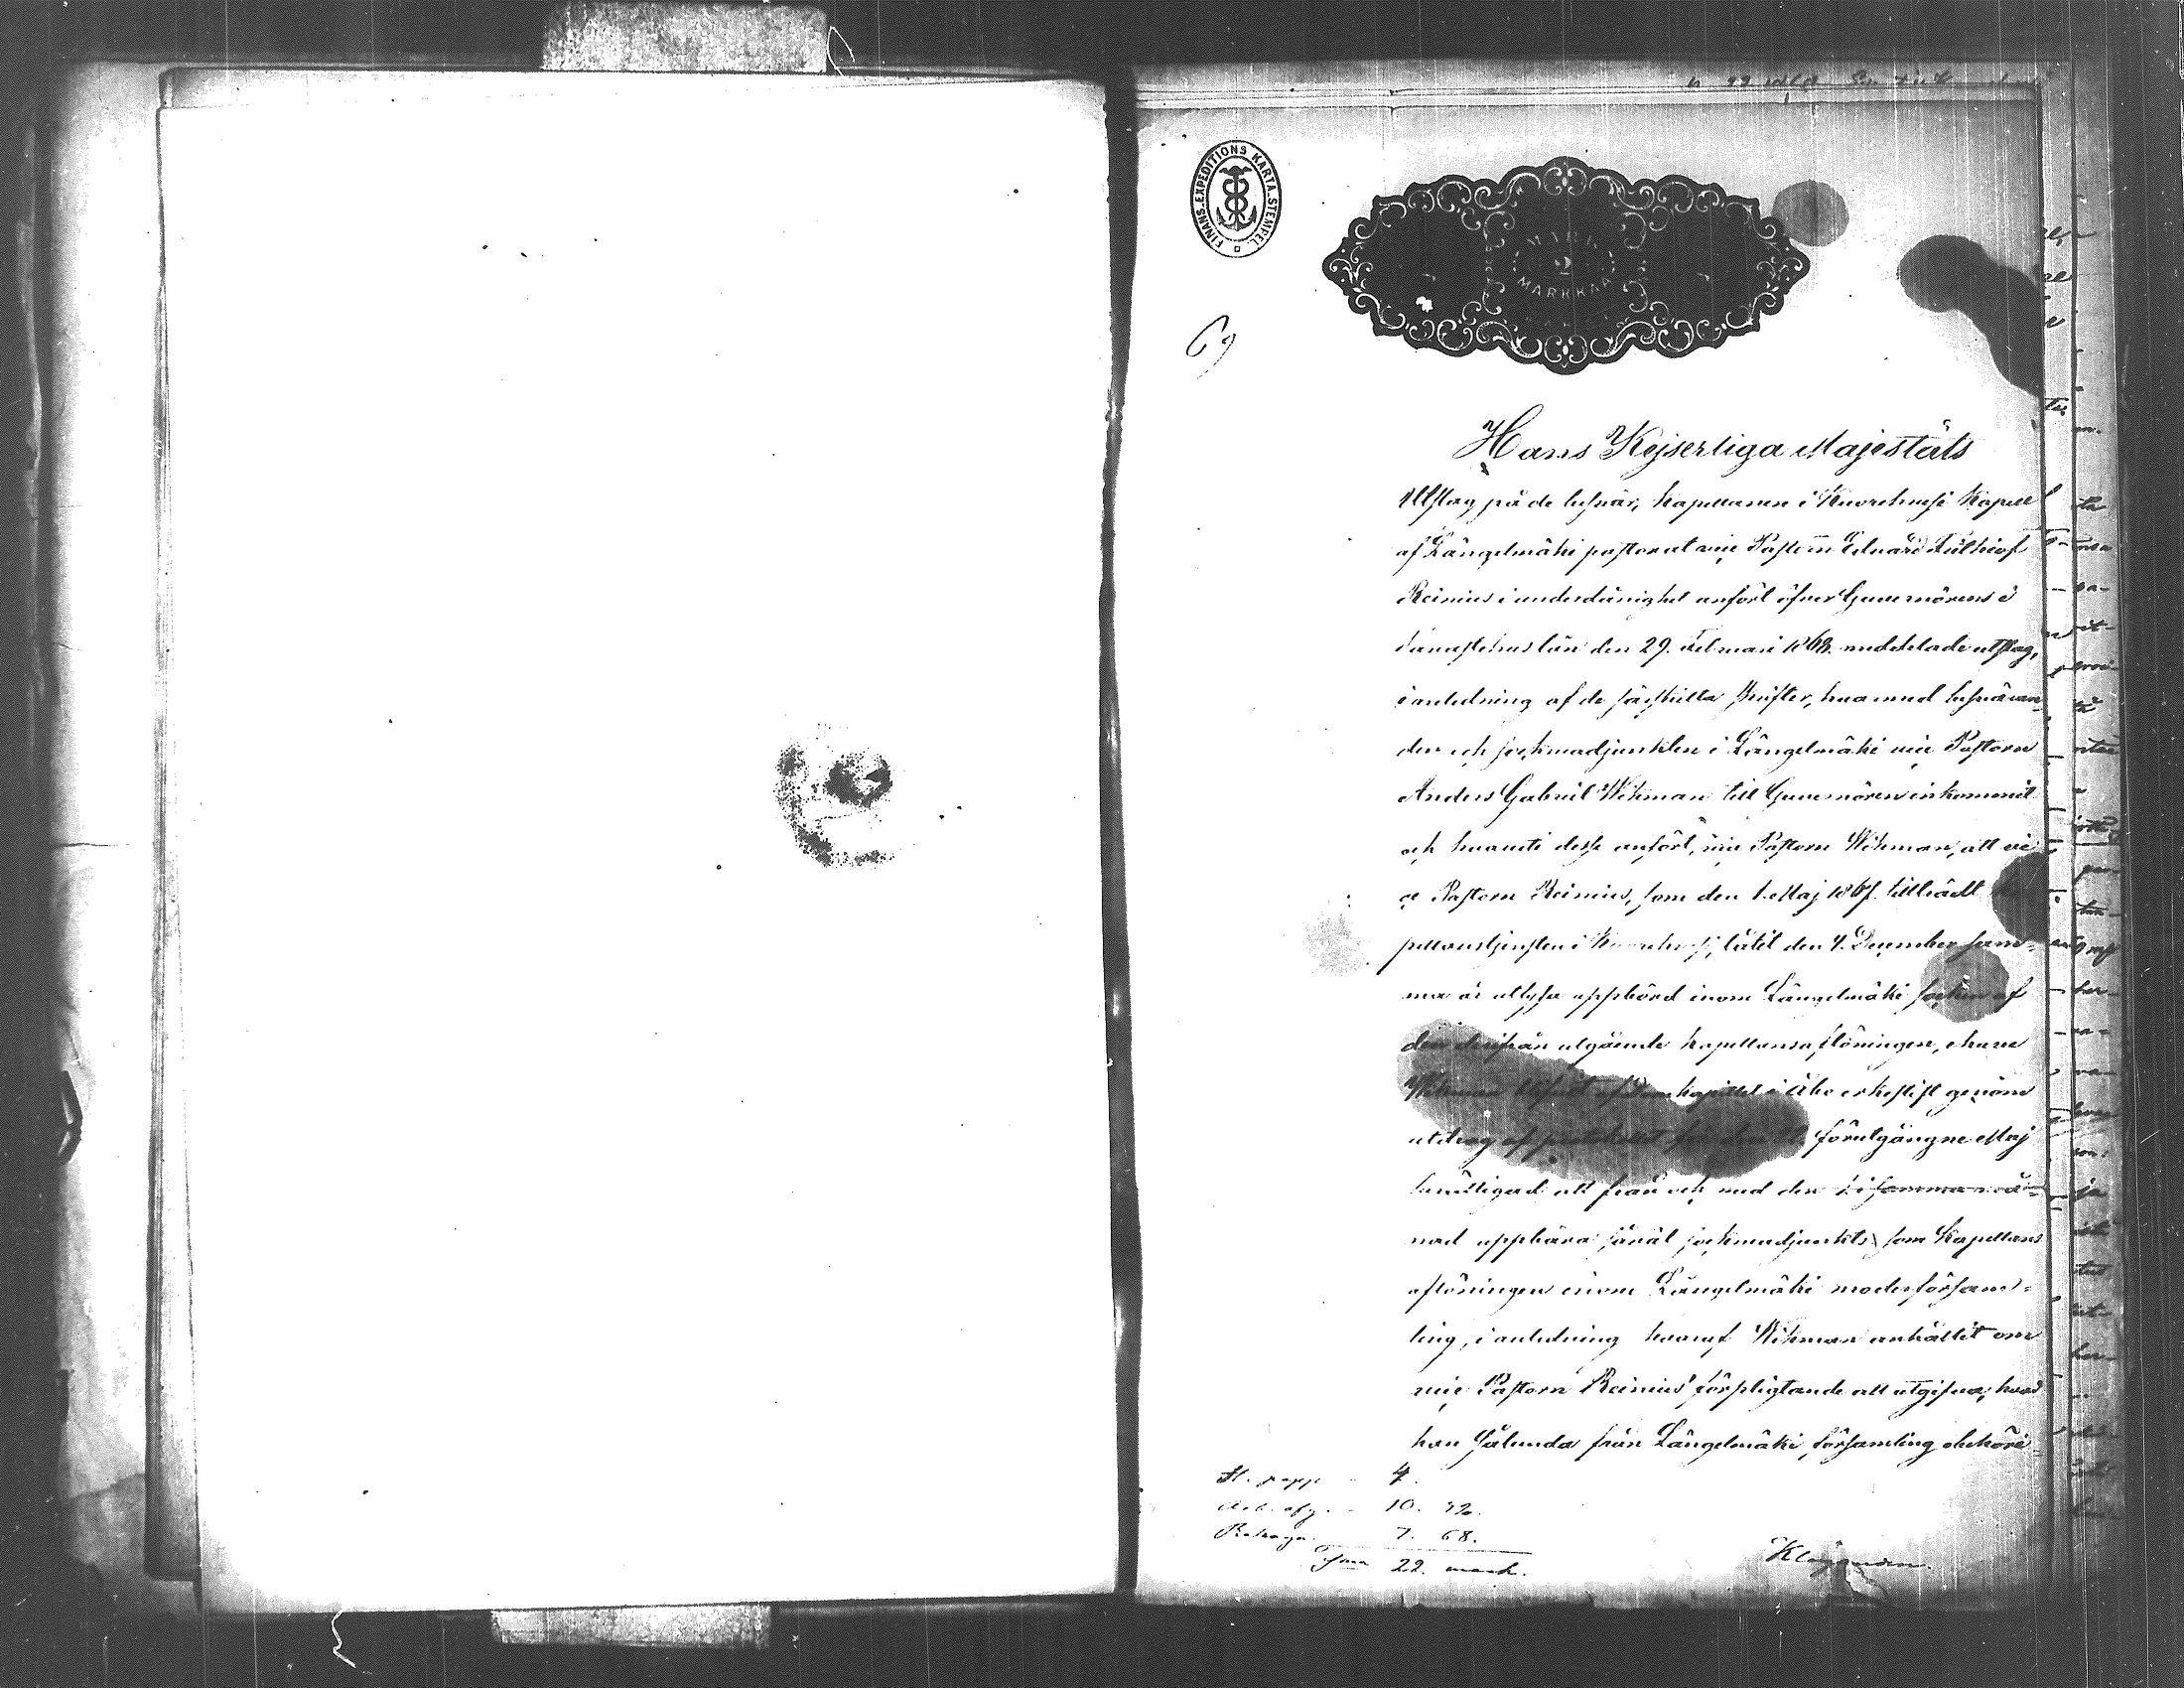 FINANS-EXPEDITIONS KARTA-STEMPEL
MARK
2
MARKKAA
69
Hans Kejserliga Majestäts
Utslag på de besvär, Kapellanen i Kuorehvesi Kapell
af Längelmäki pastorat vice Pastorn Eduard Fridhiof
Reinius i underdånighet anfört öfver Guvernörens i
Tavastehus län den 29. Februari 1868 meddelade utslag,
i anledning af de särskilta skrifter, hvarmed besvären
den och sockneadjunkten i Längelmäki vice Pastorn
Anders Gabriel Wikman till Guvernören inkommit
och hvaruti desse anfört, vice Pastorn Wikman, att vi
ce Pastorn Reinius, som den 1. Maj 1867 tillträdt ka
pellanstjensten i Kuorehvesi, låtit den 4. December sam-
ma år utlysa uppbörd inom Längelmäki socken af
den derifrån utgående kapellansaflöningen, ehuru
Wikman blifvit af Domkapitlet i Åbo erkestift genom
utdrag af protokollet för den förutgångne Maj
berättigad att från och med den 1. i samma må-
nad uppbära såväl sockneadjunkts som Kapellans
aflöningen inom Längelmäki moderförsam-
ling, i anledning hvaraf Wikman anhållit om
vice Pastorn Reinius' förpligtande att utgifva, hvad
han sålunda från Längelmäki församling obehöri-
St. papp - 4.
Arb. afg. - 10. 32.
Rekogn. 7. 68.
S:ma 22. mark.
Klaganden.